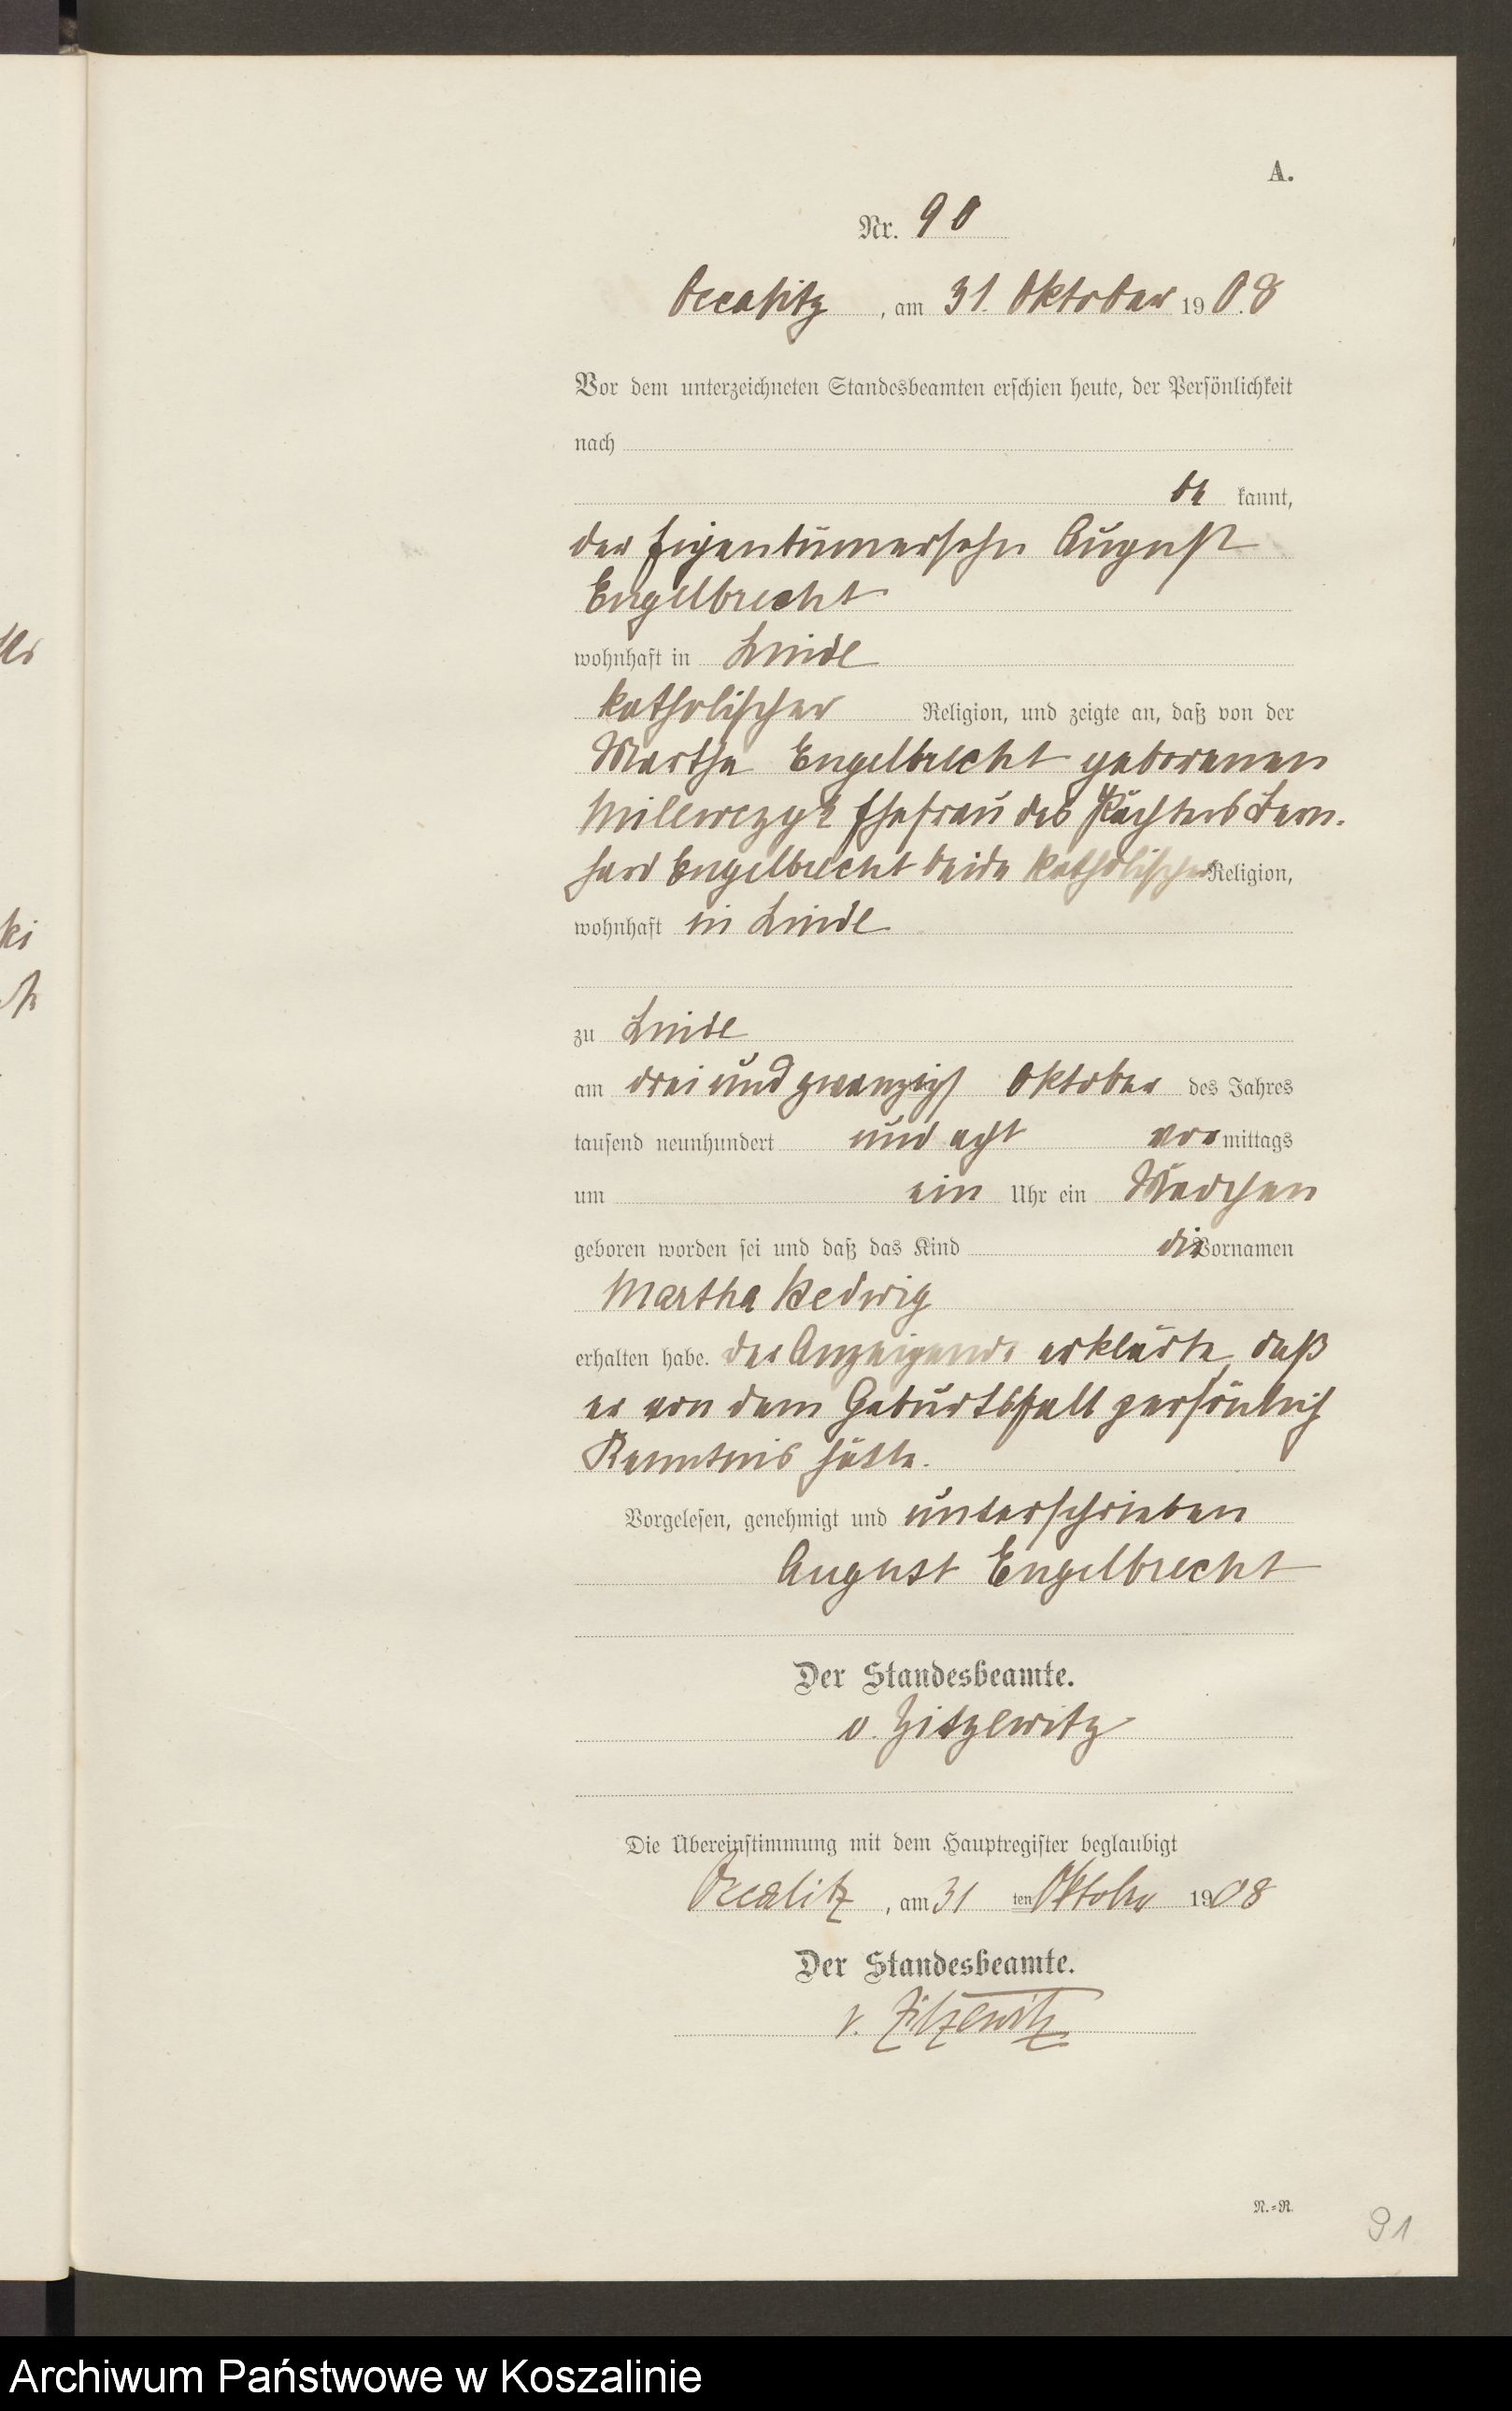 A.
Nr. 90
Occalitz, am 31. Oktober 1908
Vor dem unterzeichneten Standesbeamten erschien heute, der Persönlichkeit
nach
be kannt,
der Eigentümersohn August
Engelbrecht
wohnhaft in Linde
katholischer Religion, und zeigte an, daß von der
Martha Engelbrecht geborenen
Milewczyk Ehefrau des Pächters Bern-
hard Engelbrecht beide katholischer Religion,
wohnhaft in Linde
zu Linde
am drei und zwanzigst Oktober des Jahres
tausend neunhundert und acht vor mittags
um ein Uhr ein Mädchen
geboren worden sei und daß das Kind die Vornamen
Martha Hedwig
erhalten habe. der Anzeigende erklärte, daß
er von dem Geburtsfall persönlich
Kenntnis hätte.
Vorgelesen, genehmigt und unterschrieben
August Engelbrecht
Der Standesbeamte.
v. Zitzewitz
Die Übereinstimmung mit dem Hauptregister beglaubigt
Occalitz, am 31 ten Oktober 1908
Der Standesbeamte.
v. Zitzewitz
N.=R.
91
ki
Archiwum Państwowe w Koszalinie